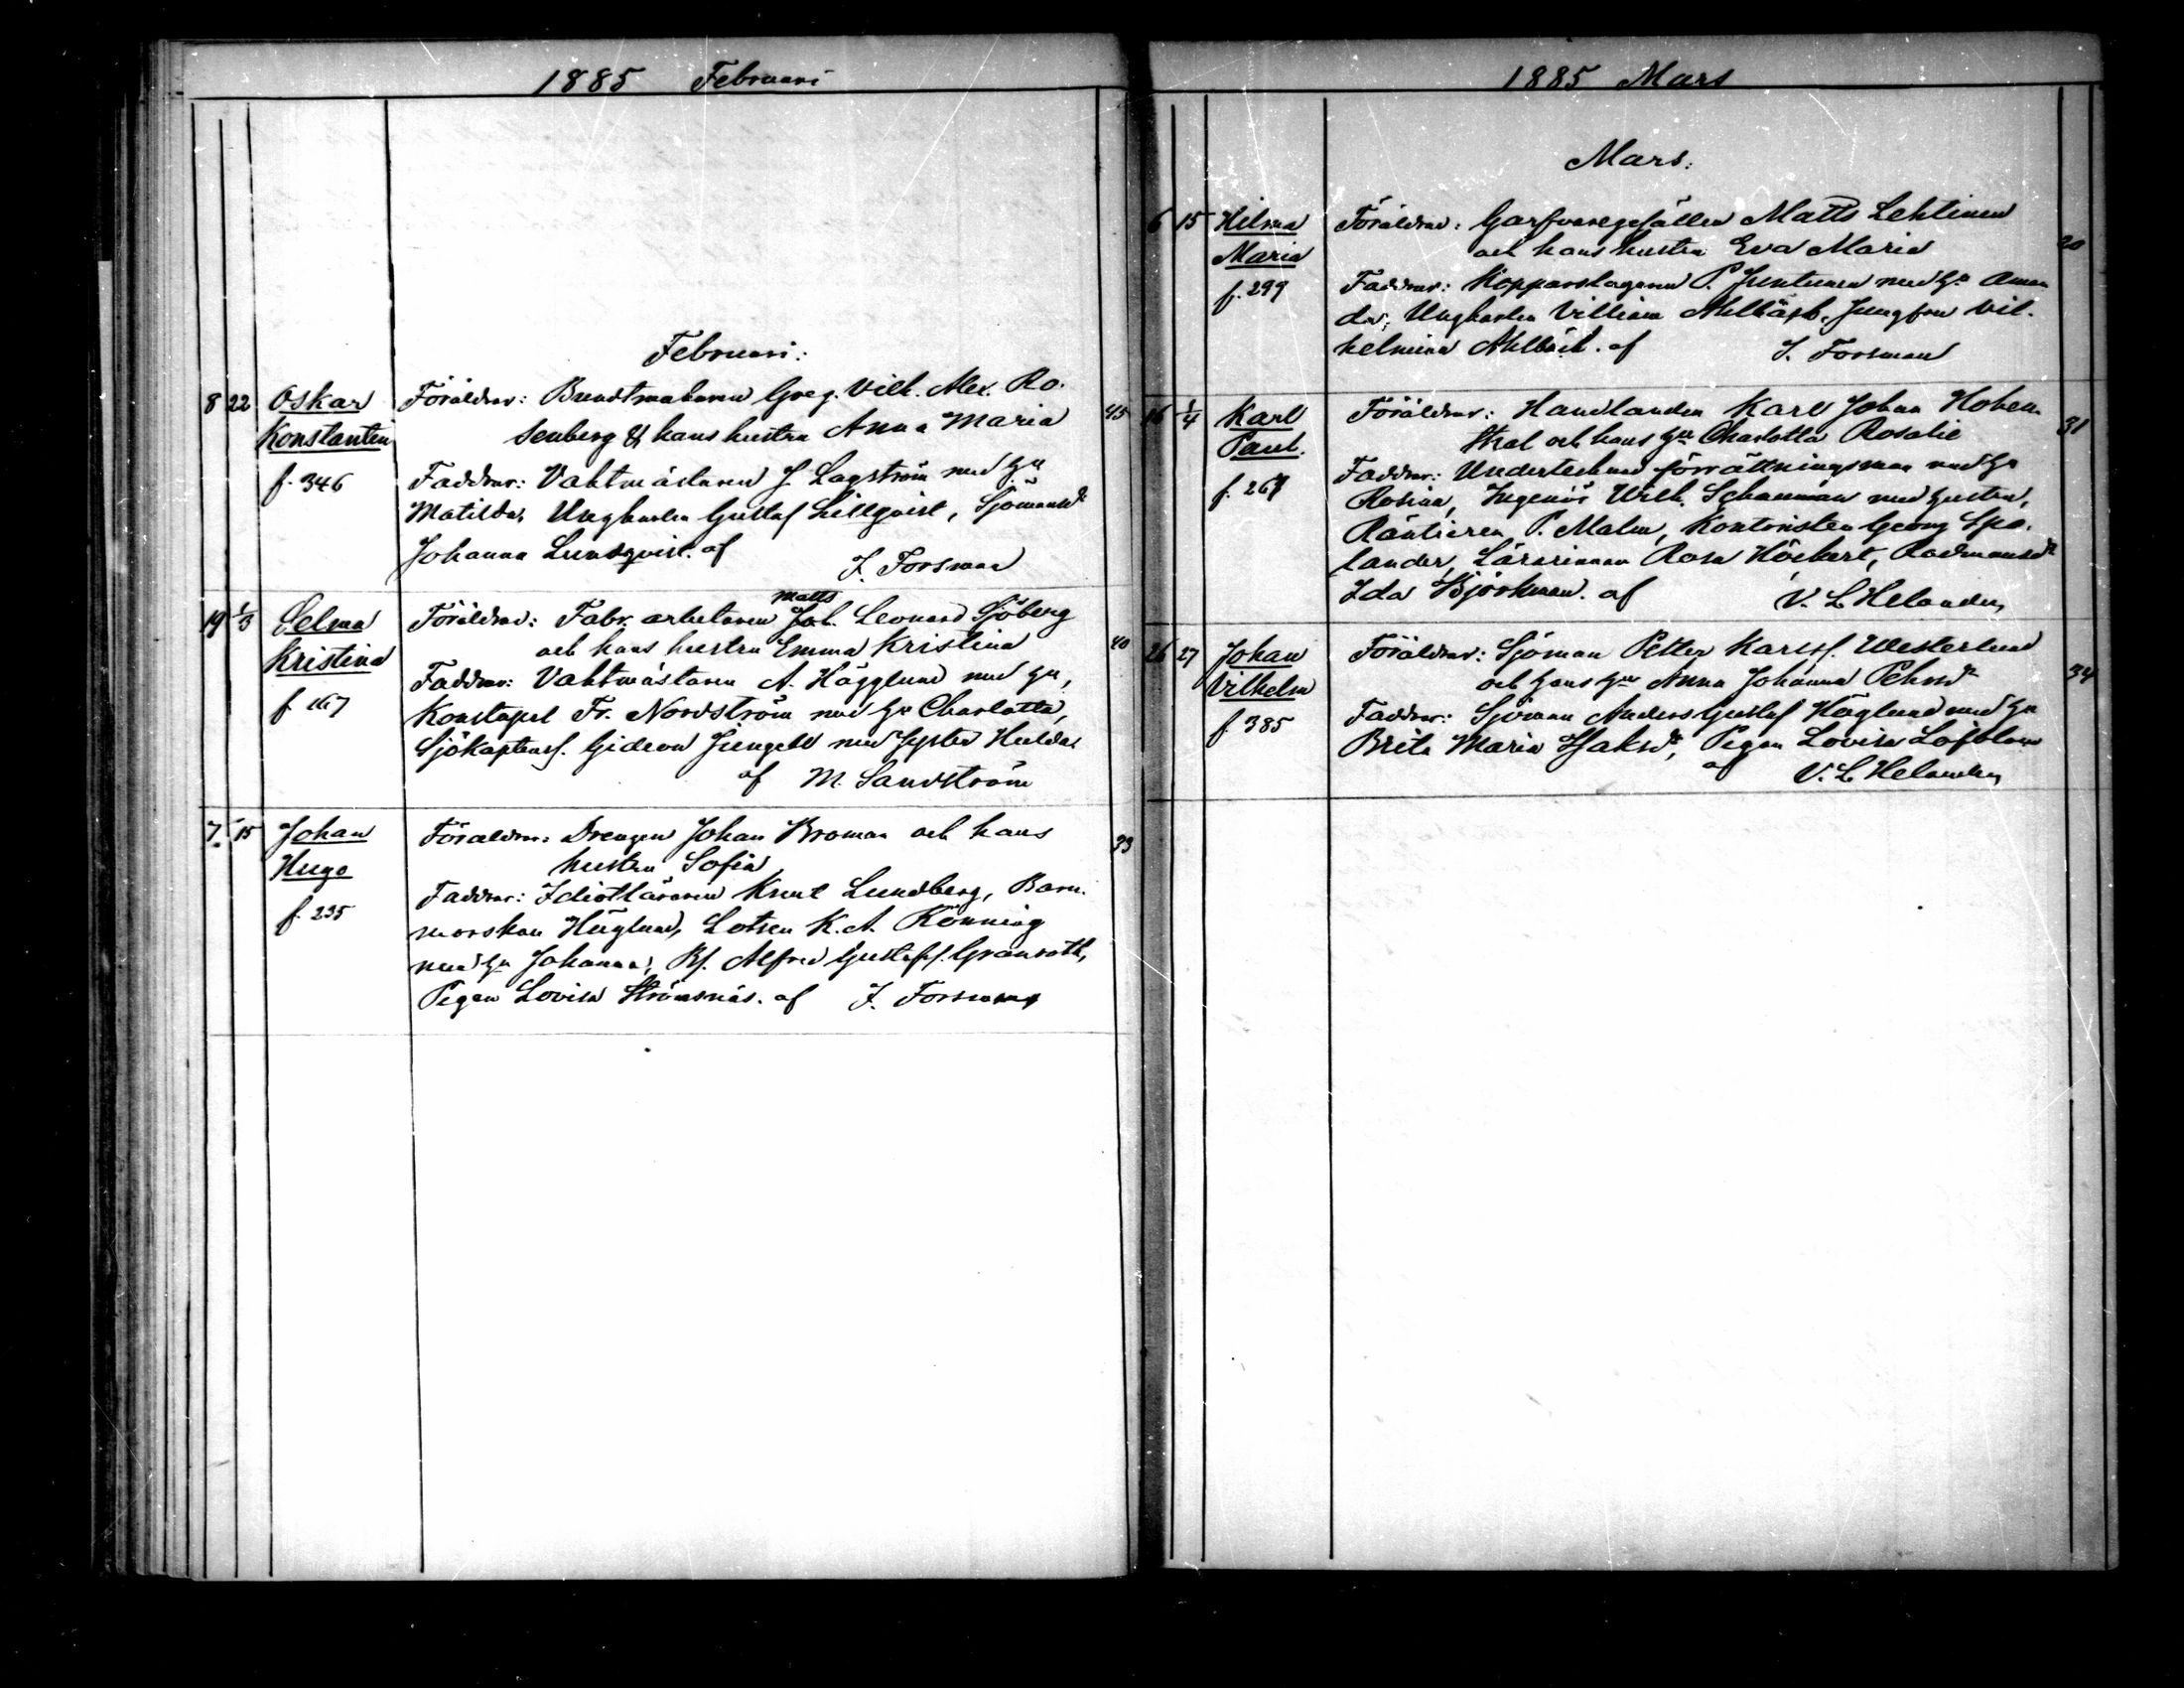 1885 Februari
Februari:
8 22 Oskar Föräldrar: Bundtmakaren Greg. Vilh. Alex. Ro- 45
Konstantin senberg & hans hustru Anna Maria
f. 346 Faddrar: Vaktmästaren J. Lagström med hu
Matilda, Ungkarlen Gustaf Lillqvist, Sjömansdr
Johanna Lundqvist. af J. Forsman
19 1/3 Selma Föräldrar: Fabr. arbetaren Matts Leonard Sjöberg 40
Kristina och hans hustru Emma Kristina
f. 167 Faddrar: Vaktmästaren A. Hägglund med hu,
Konstapel Fr. Nordström med hu Charlotta,
Sjökaptens. Gideon Jungell med syster Hulda
af M. Sandström
7 15 Johan Föräldrar: Drengen Johan Broman och hans 33
Hugo hustru Sofia
f. 235 Faddrar: Idiotläraren Knut Lundberg, Barn-
morskan Höglund, Lotsen K. A. Könning
med hu Johanna, Bs. Alfred Gustafss. Granroth,
Pigan Lovisa Strömsnäs. af J. Forsman
1885 Mars
Mars.
6 15 Hilma Föräldrar: Garfvaregesällen Matts Lehtinen 20
Maria och hans hustru Eva Maria
f. 299 Faddrar: Kopparslagaren P. Juntunen med hu Aman
da, Ungkarlen Villiam Ahlbäck, Jungfrun Vil-
helmina Ahlbäck. af J. Forsman
16 1/4 Karl Föräldrar: Handlanden Karl Johan Hohen- 31
Paul. thal och hans hu Charlotta Rosalie
f. 267 Faddrar: Undertecknad förrättningsman med hu
Rosina, Ingeniör Wilh. Schauman med hustru,
Räntieren P. Malm, Kontoristen Georg Spo-
lander, Lärarinnan Rosa Höckert, Rådmansdr
Ida Björkman. af V. L. Helander
26 27 Johan Föräldrar: Sjöman Petter Karlss. Westerlund 34
Vilhelm och hans hu Anna Johanna Pehrsdr
f. 385 Faddrar: Sjöman Anders Gustaf Höglund med hu
Brita Maria Isaksdr, Pigan Lovisa Löfblom
af V. L. Helander